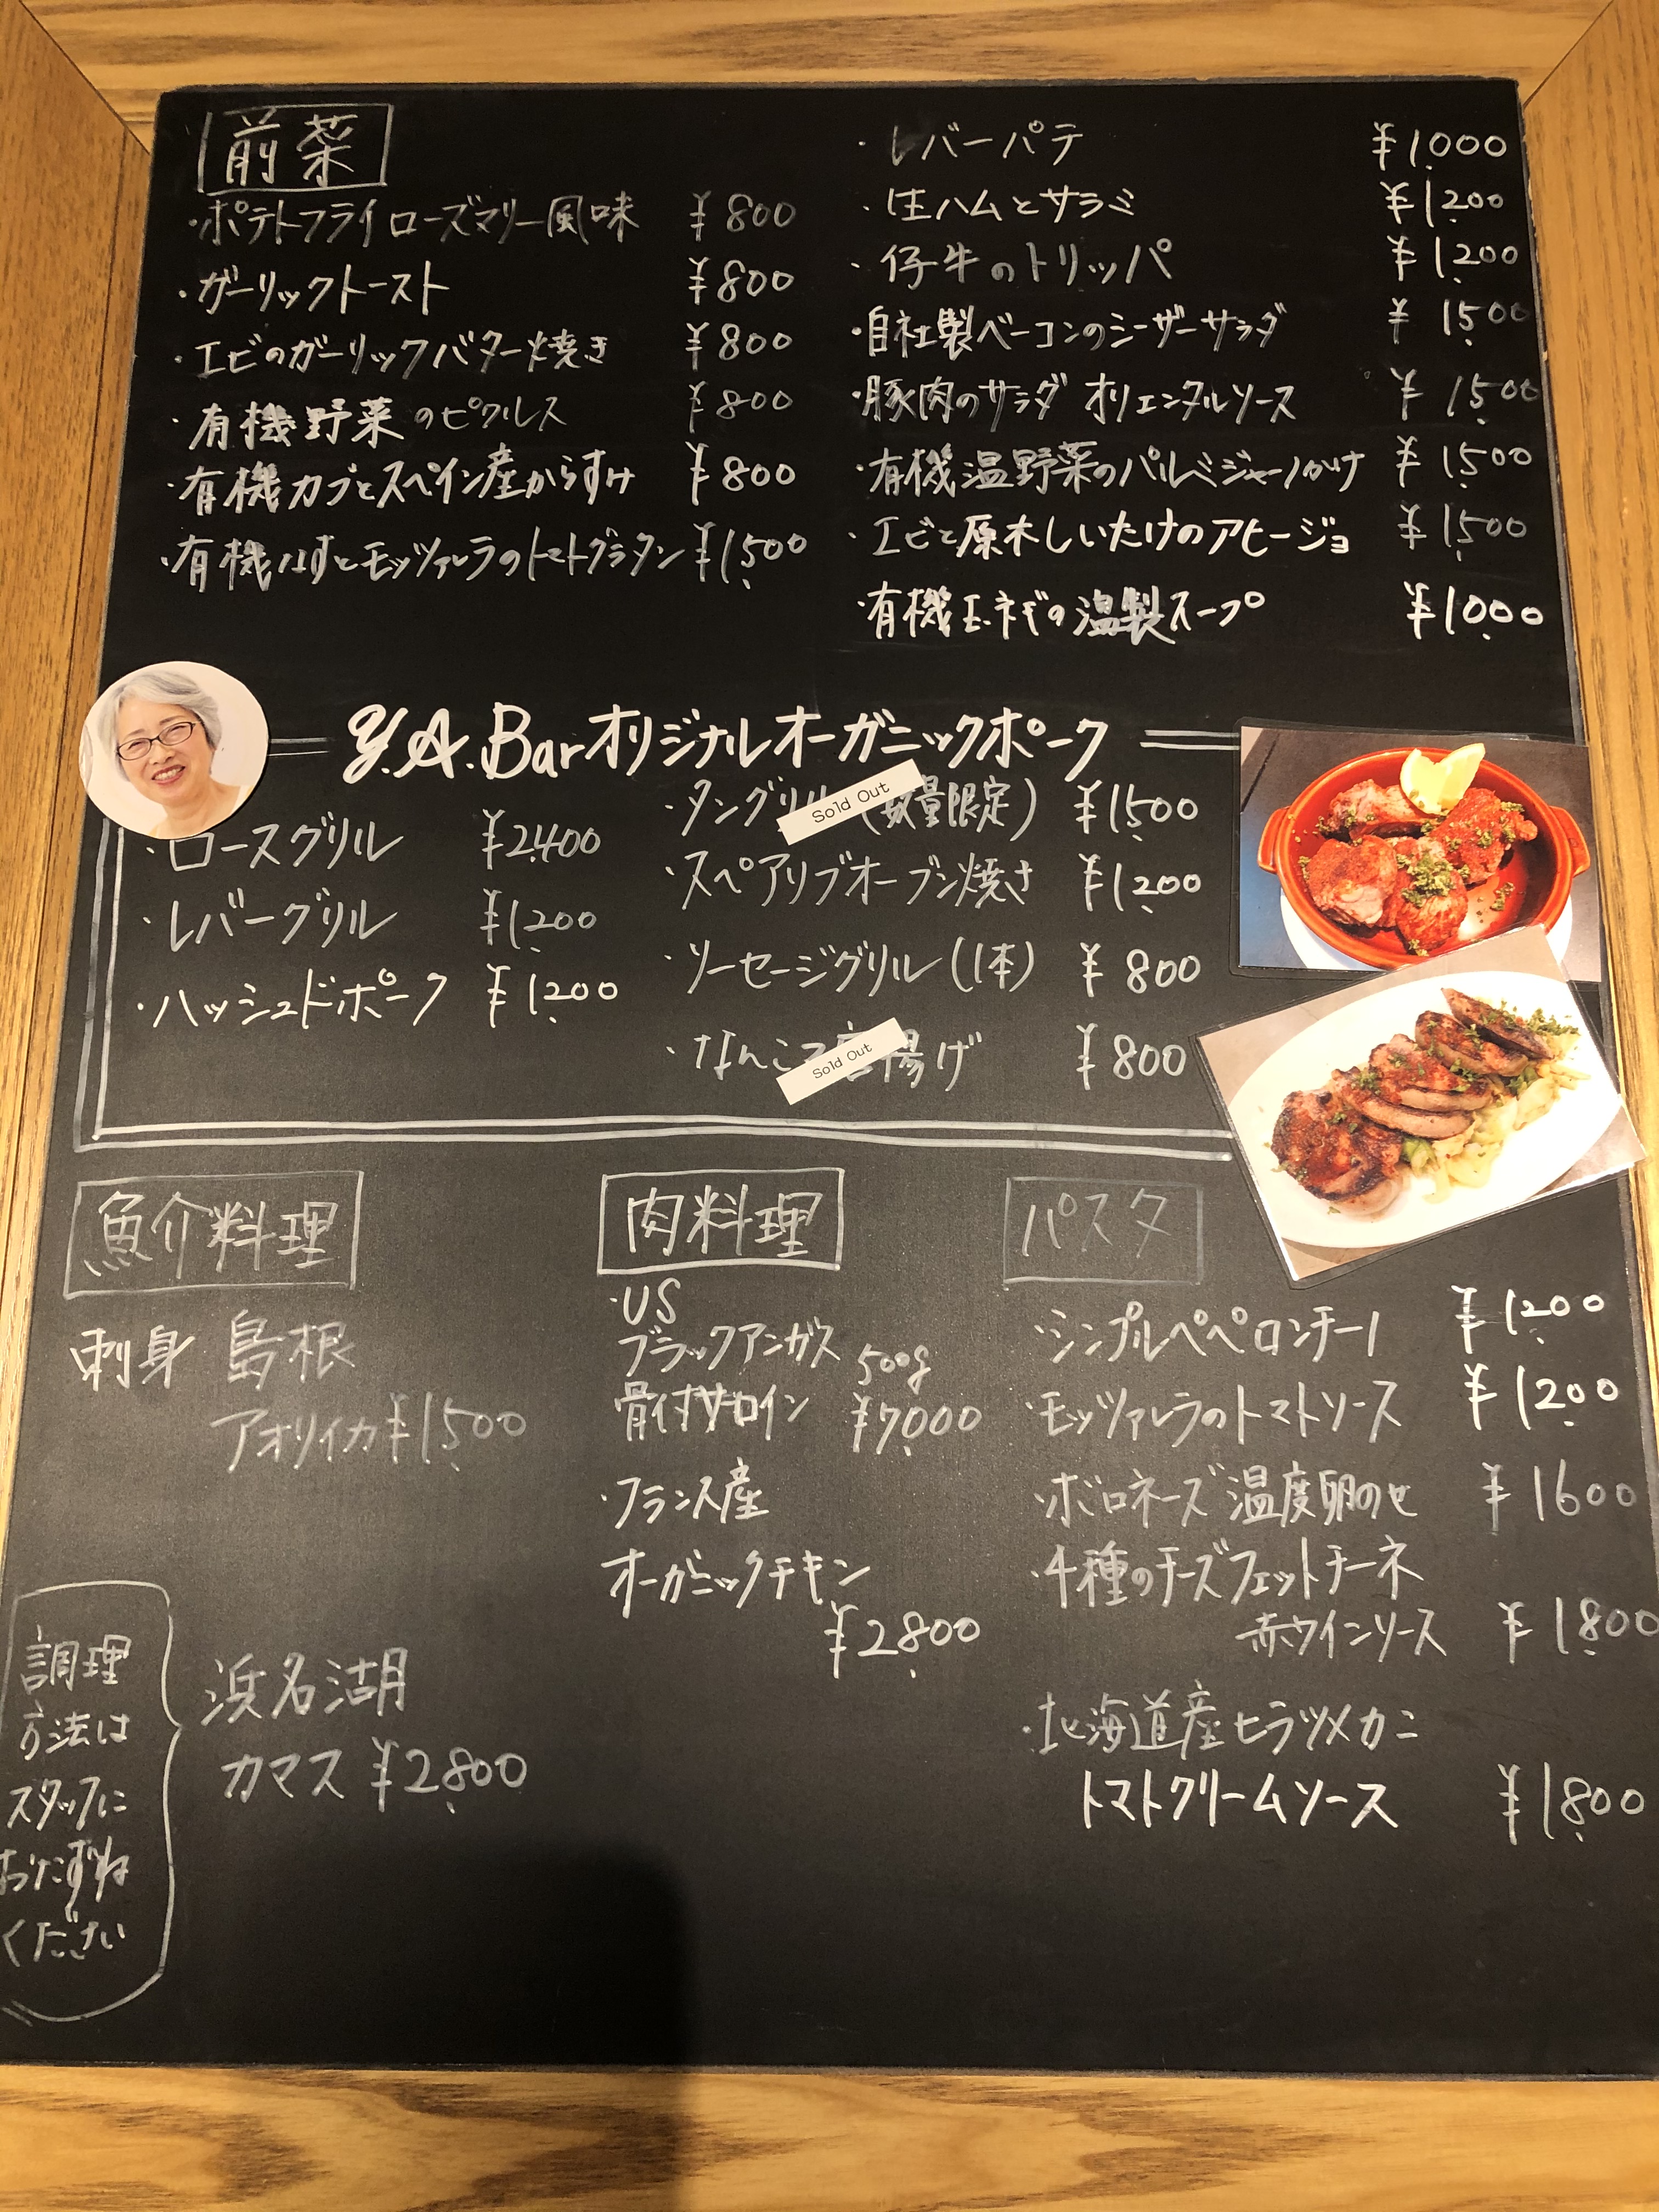 前菜
・ポテトフライ ローズマリー風味 ¥800
・ガーリックトースト ¥800
・エビのガーリックバター焼き ¥800
・有機野菜のピクルス ¥800
・有機カブとスペイン産からすみ ¥800
・有機なすとモッツァレラのトマトグラタン ¥1,500
・レバーパテ ¥1,000
・生ハムとサラミ ¥1,200
・仔牛のトリッパ ¥1,200
・自社製ベーコンのシーザーサラダ ¥1,500
・豚肉のサラダ オリエンタルソース ¥1,500
・有機温野菜のパルミジャーノがけ ¥1,500
・エビと原木しいたけのアヒージョ ¥1,500
・有機玉ネギの温製スープ ¥1,000
Y.A.Barオリジナルオーガニックポーク
・ロースグリル ¥2,400
・レバーグリル ¥1,200
・ハッシュドポーク ¥1,200
・タングリル(数量限定) ¥1,500
Sold Out
・スペアリブオーブン焼き ¥1,200
・ソーセージグリル(1本) ¥800
・なんこつ唐揚げ ¥800
Sold Out
魚介料理
刺身 島根
アオリイカ ¥1,500
浜名湖
カマス ¥2,800
調理
方法は
スタッフに
おたずね
ください
肉料理
・US
ブラックアンガス 500g
骨付サーロイン ¥7,000
・フランス産
オーガニックチキン
¥2,800
パスタ
・シンプルペペロンチーノ ¥1,200
・モッツァレラのトマトソース ¥1,200
・ボロネーズ 温度卵のせ ¥1600
・4種のチーズフェットチーネ
赤ワインソース ¥1,800
・北海道産ヒラツメカニ
トマトクリームソース ¥1,800